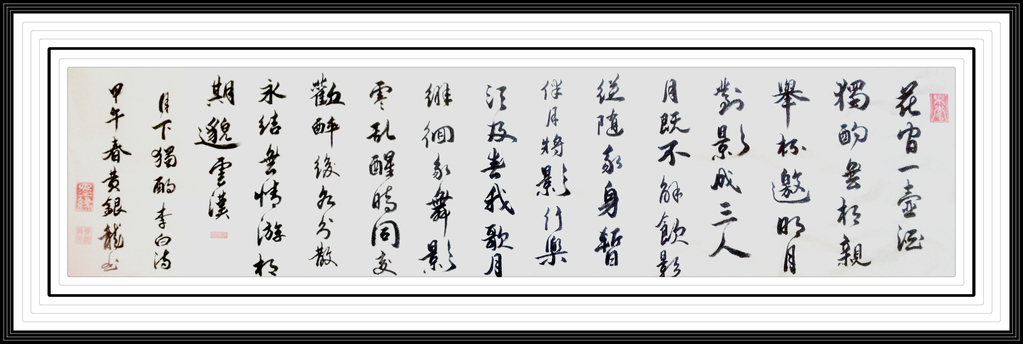 花間一壺酒
獨酌無相親
舉杯邀明月
對影成三人
月既不解飲影
徒隨我身暫
伴月將影行樂
須及春我歌月
徘徊我舞影
零亂醒時同交
歡醉後各分散
永結無情游相
期邈雲漢
月下獨酌 李白詩
甲午春黄銀龍书